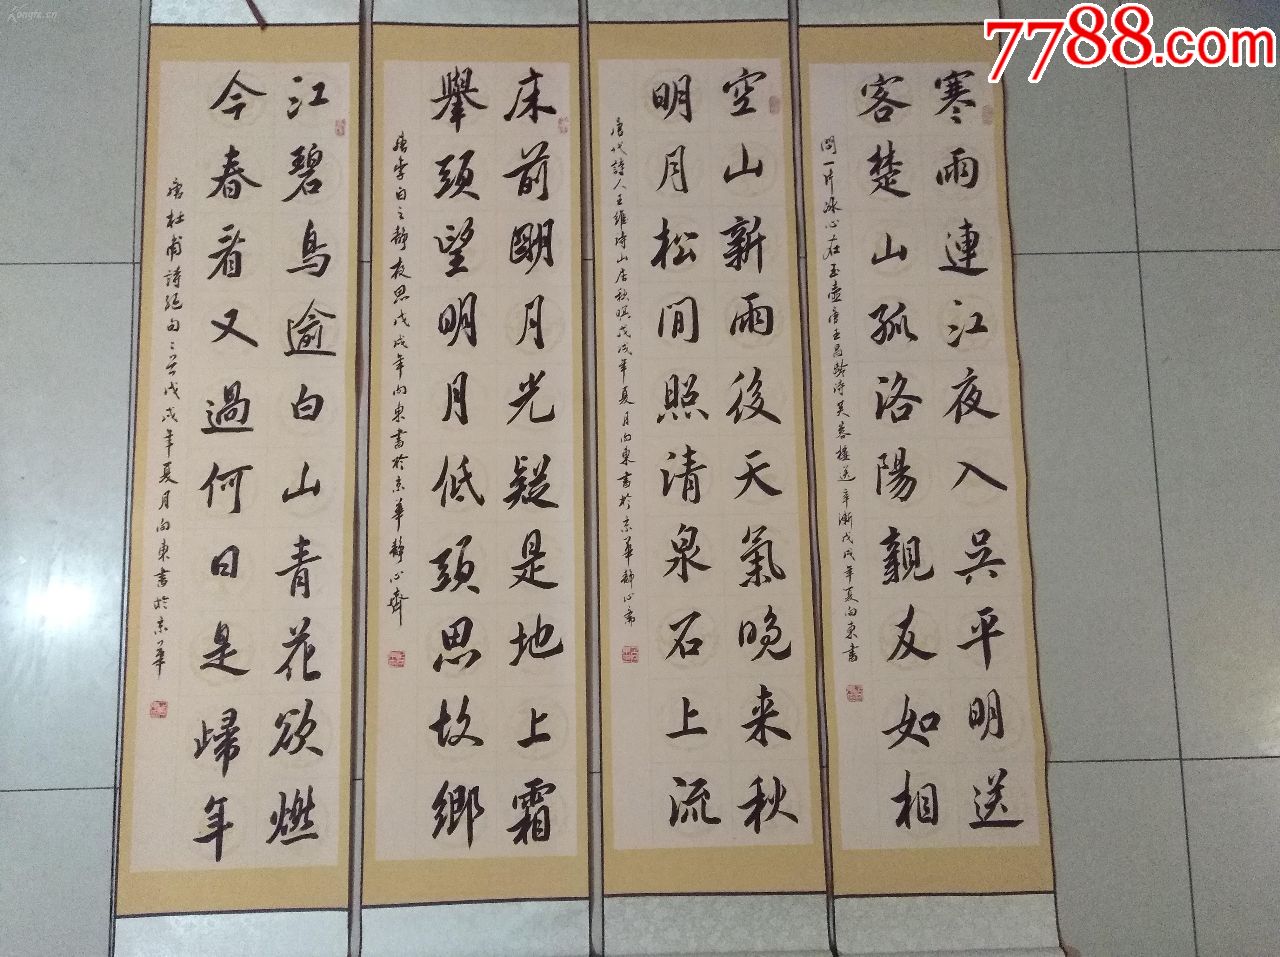 7788.com
Kongfz.cn
寒雨連江夜入吳平明送
客楚山孤洛陽親友如相
問一片冰心在玉壺唐王昌齡詩芙蓉樓送辛漸戊戌年夏向東書
空山新雨後天氣晚来秋
明月松間照清泉石上流
唐代詩人王維詩山居秋暝戊戌年夏月向東書於京華静心斋
床前明月光疑是地上霜
舉頭望明月低頭思故鄉
唐李白之静夜思戊戌年向東書於京華静心齋
江碧鳥逾白山青花欲燃
今春看又過何日是歸年
唐杜甫詩絕句二首戊戌年夏月向東書於京華